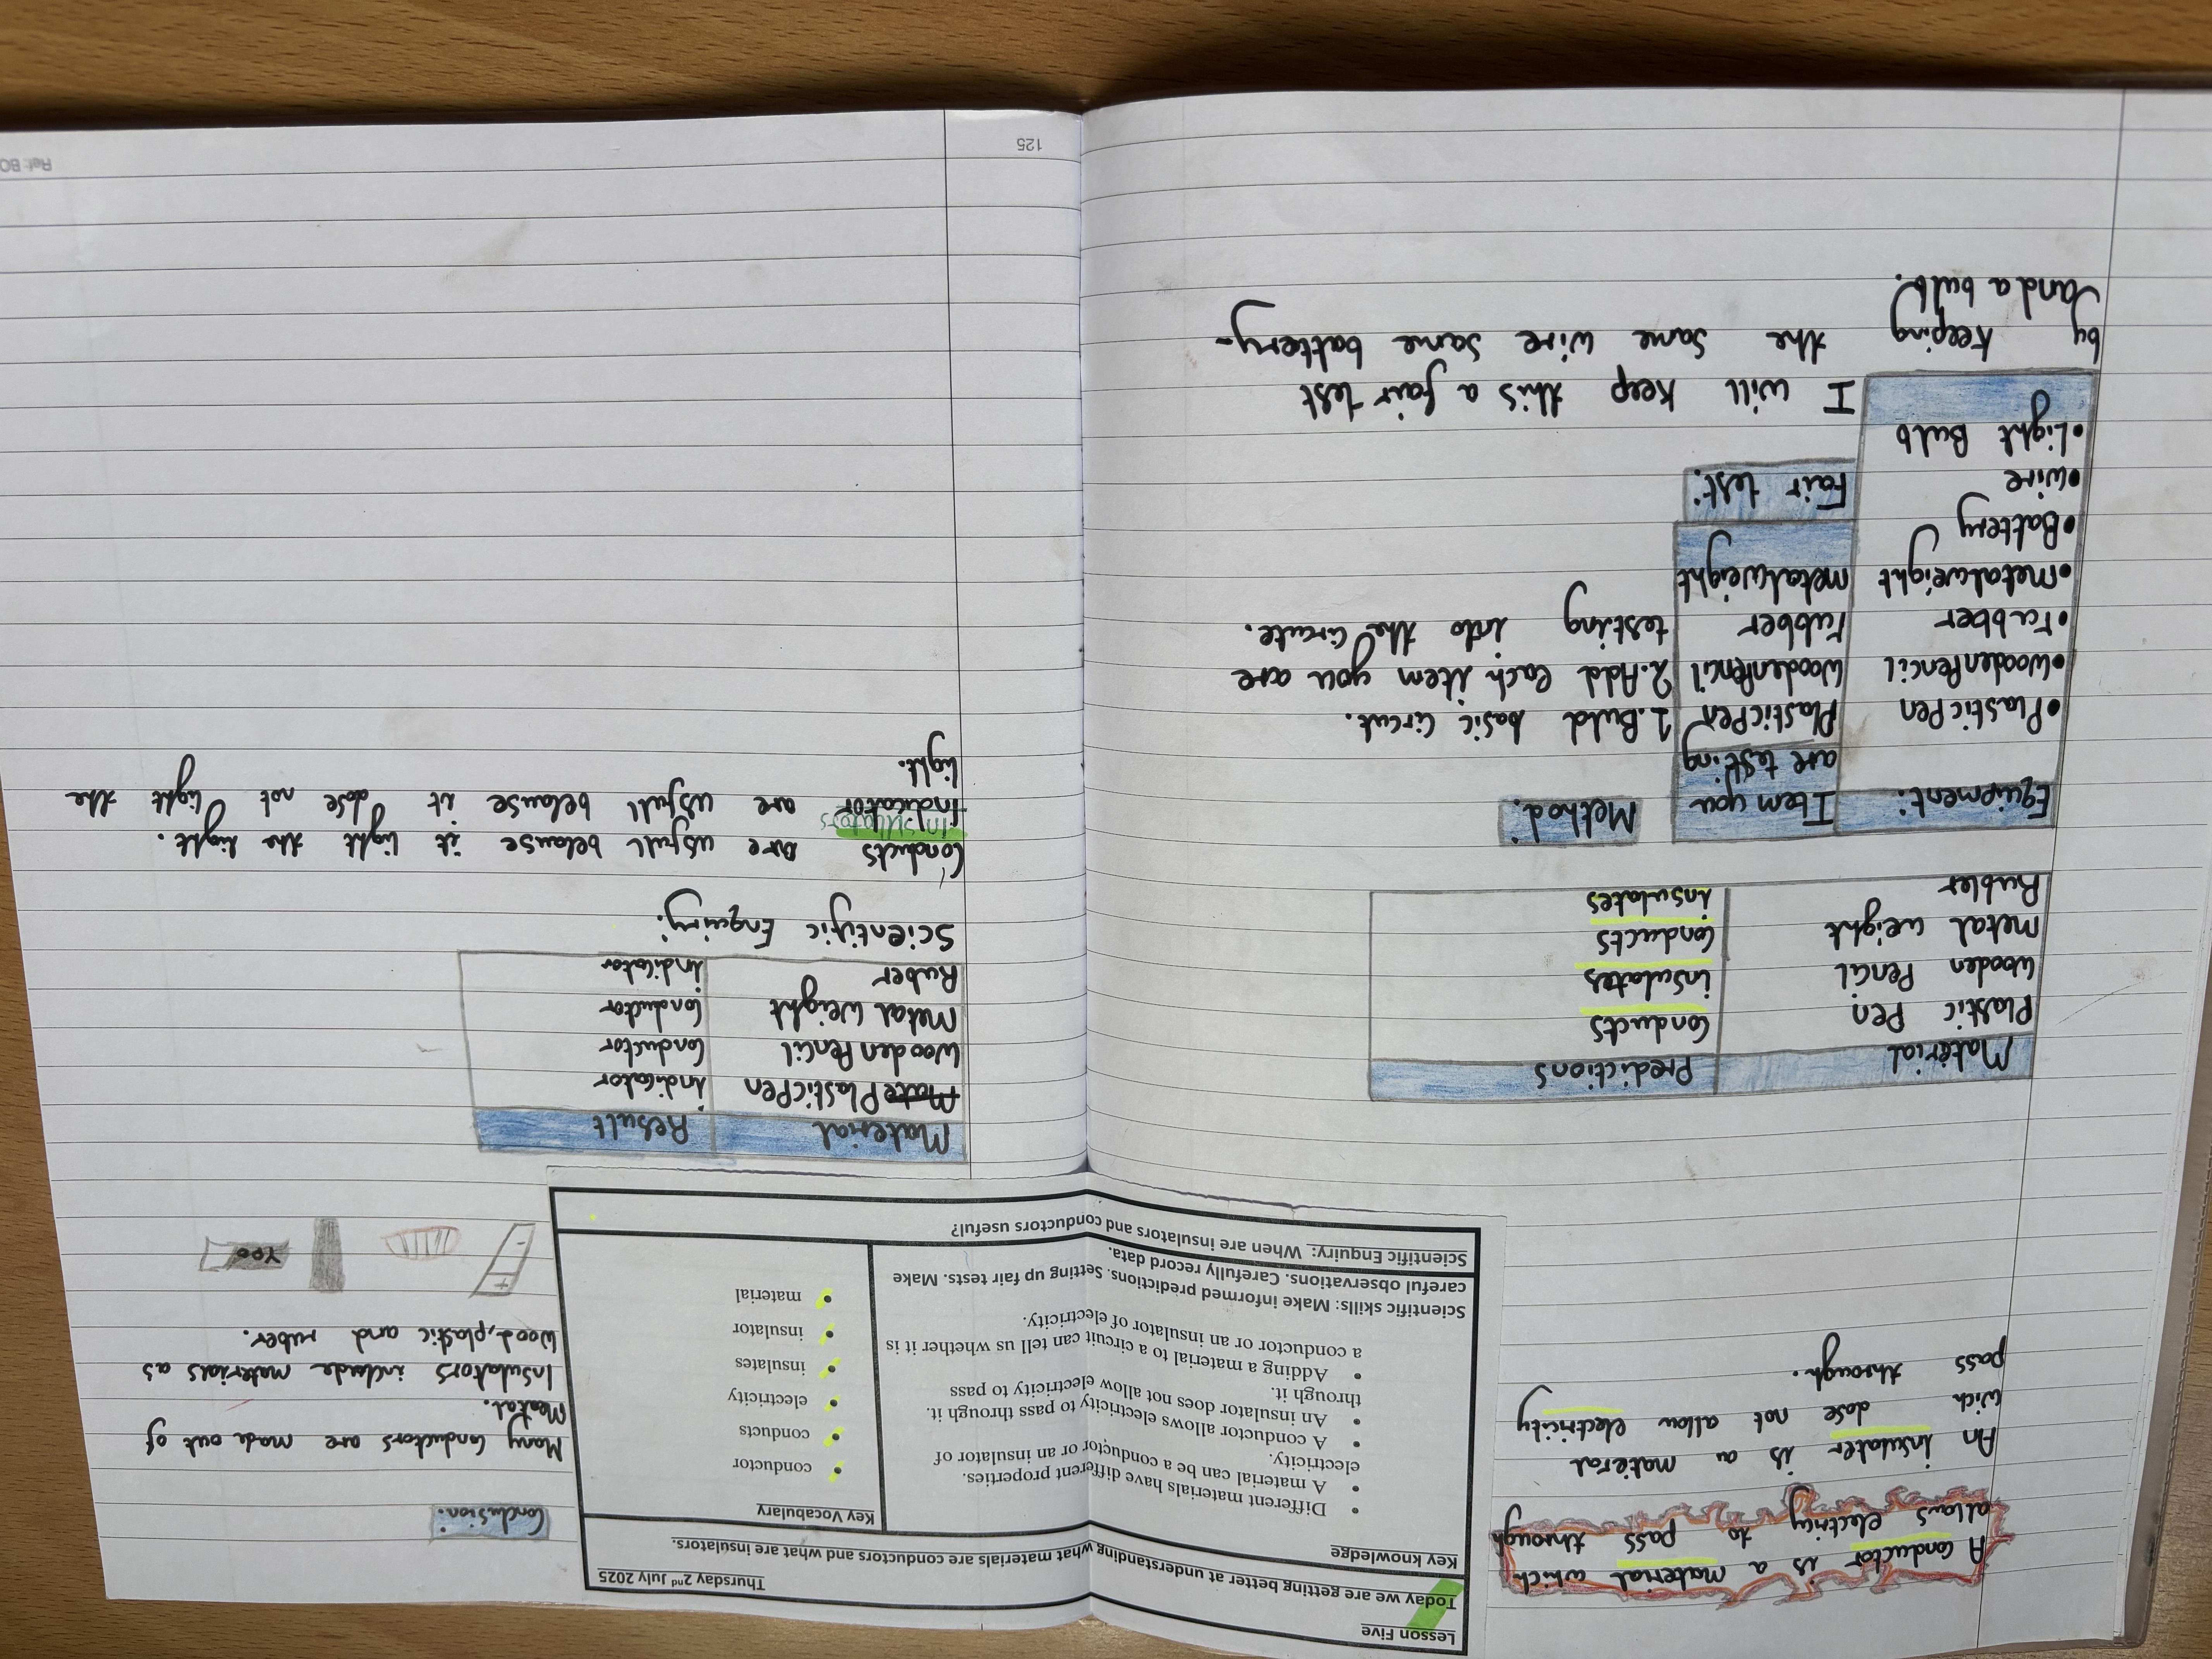 A conductor is a material which
allows electriciy to pass through
An insulater is a material
wich dose not allow electricity
pass through.
Lesson Five
Today we are getting better at understanding what materials are conductors and what are insulators.
Thursday 2nd July 2025
Key knowledge
• Different materials have different properties.
• A material can be a conductor or an insulator of
electricity.
• A conductor allows electricity to pass through it.
• An insulator does not allow electricity to pass
through it.
• Adding a material to a circuit can tell us whether it is
a conductor or an insulator of electricity.
Key Vocabulary
• conductor
• conducts
• electricity
• insulates
• insulator
• material
Scientific skills: Make informed predictions. Setting up fair tests. Make
careful observations. Carefully record data.
Scientific Enquiry: When are insulators and conductors useful?
Material Predictions
Plastic Pen Conducts
Wooden Pencil insulates
Metal weight Conducts
Rubber insulates
Equipment:
•PlasticPen
•WoodenPencil
•rubber
•Metalweight
•Battery
•wire
•Light Bulb
Item you
are testing
PlasticPen
WoodenPencil
rubber
metalweight
Method:
1.Buld basic circut.
2.Add each item you are
testing into the circute.
Fair test:
I will keep this a fair test
by keeping the same wire same battery
and a bulb.
Conclusion:
Many Conductors are made out of
Meatal.
Insulators include materials as
Wood,plastic and ruber.
+
-
Material Result
Mate PlasticPen Indicator
WoodenPencil Conductor
Metal Weight Conductor
Ruber Indicator
Scientific Enquiry:
Conducts are usfull because it light the light.
Insulators
indicator are usfull because it dose not light the
light.
125